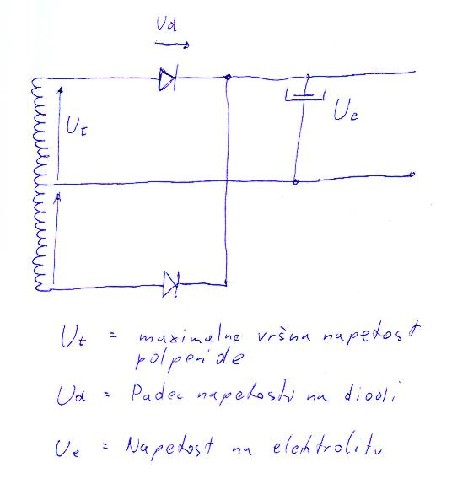 Ud
Ut
Ue
Ut = maximalne vršna napetost
polperide
Ud = Padec napetosti na diodi
Ue = Napetost na elektrolitu